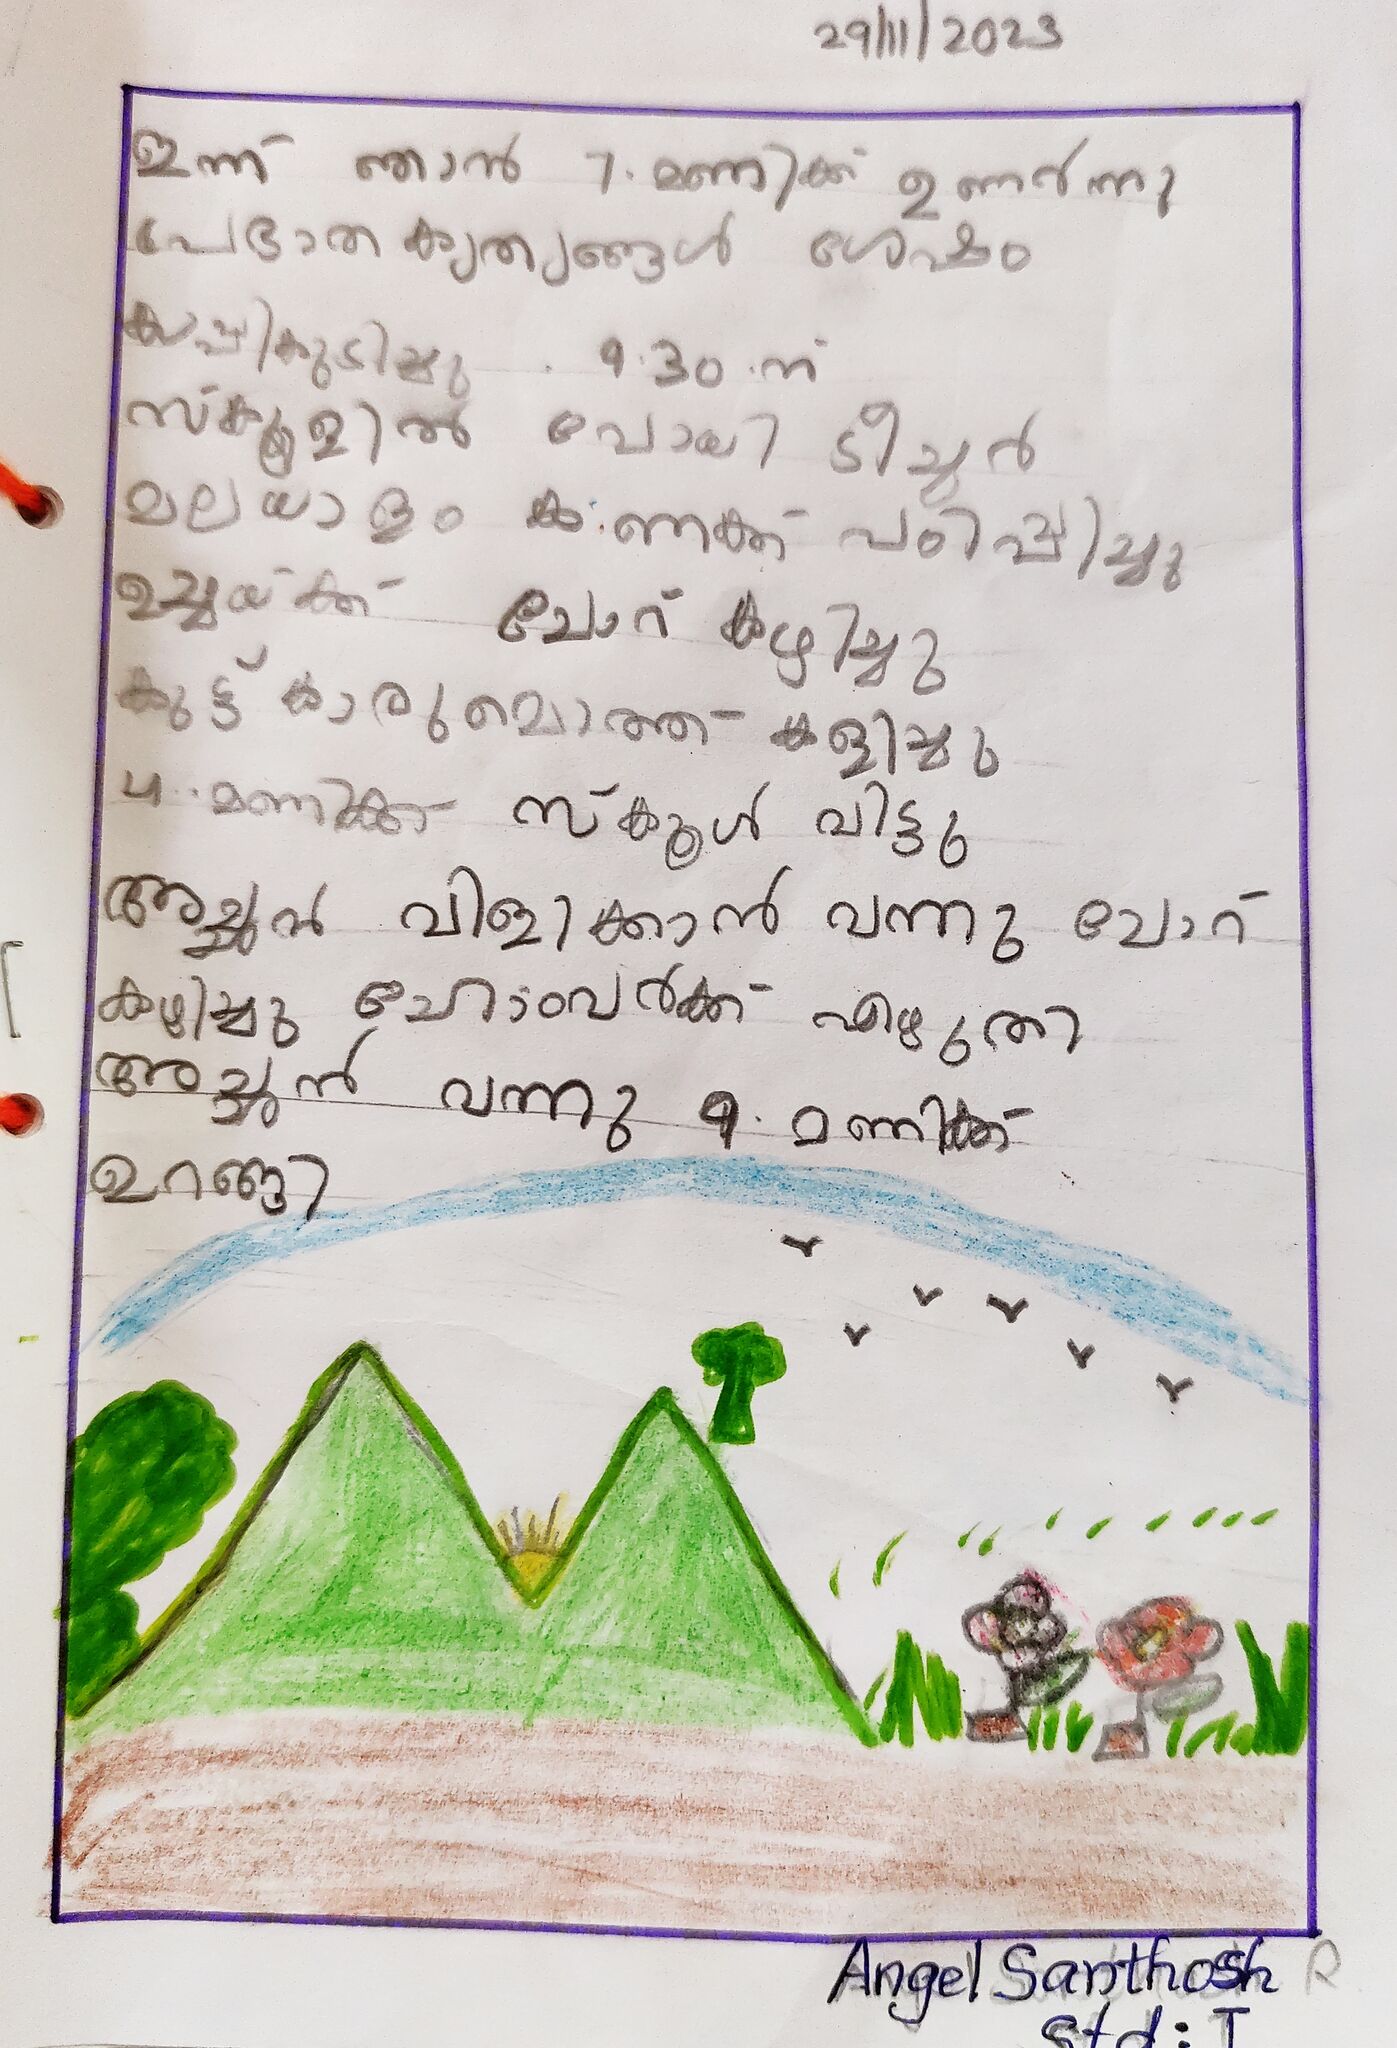 29/11/2023
ഇന്ന് ഞാൻ 7.മണിക്ക് ഉണർന്നു
പ്രഭാതകൃത്യങ്ങൾ ശേഷം
കാപ്പികുടിച്ചു . 9.30.ന്
സ്കൂളിൽ പോയി ടീച്ചർ
മലയാളം കണക്ക് പഠിപ്പിച്ചു
ഉച്ചയ്ക്ക് ചോറ് കഴിച്ചു
കുട്ട്കാരുമൊത്ത് കളിച്ചു
4.മണിക്ക് സ്കൂൾ വിട്ടു
അച്ചൻ വിളിക്കാൻ വന്നു ചോറ്
കഴിച്ചു ഹോംവർക്ക് എഴുതി
അച്ചൻ വന്നു 9.മണിക്ക്
ഉറങ്ങി
Angel Santhosh R
Std: I